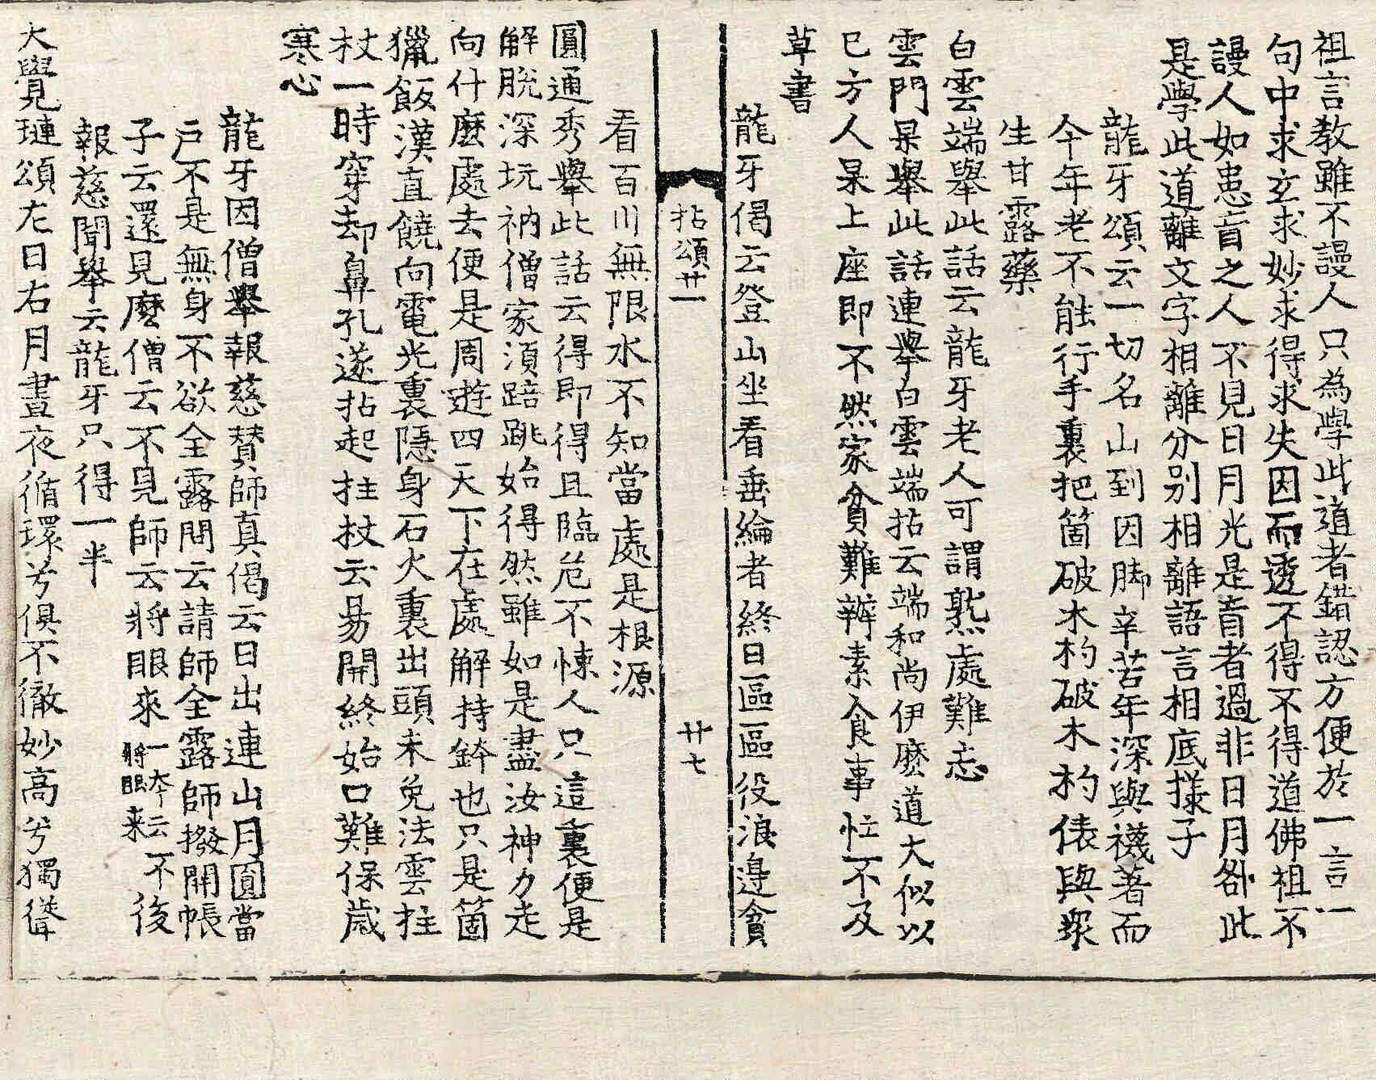 祖言教雖不謾人只為學此道者錯認方便於一言一
句中求玄求妙求得求失因而透不得不得道佛祖不
謾人如患盲之人不見日月光是盲者過非日月咎此
是學此道離文字相離分別相離語言相底樣子
龍牙頌云一切名山到因脚辛苦年深與襪著而
今年老不能行手裏把箇破木杓破木杓俵與衆
生甘露藥
白雲端舉此話云龍牙老人可謂熟處難忘
雲門杲舉此話連舉白雲端拈云端和尚伊麽道大似以
巳方人杲上座即不然家貧難辨素食事忙不及
草書
龍牙偈云登山坐看垂綸者終日區區役浪邊貪
拈頌廿一
廿七
看百川無限水不知當處是根源
圓通秀舉此話云得即得且臨危不悚人只這裏便是
解脫深坑衲僧家須踣跳始得然雖如是盡汝神力走
向什麽處去便是周遊四天下在處解持鉢也只是箇
獵飯漢直饒向電光裏隱身石火裏出頭未免法雲拄
杖一時穿却鼻孔遂拈起拄杖云易開終始口難保歲
寒心
龍牙因僧舉報慈賛師真偈云日出連山月圓當
戶不是無身不欲全露問云請師全露師撥開帳
子云還見麽僧云不見師云將眼來一本云不將眼来後
報慈聞舉云龍牙只得一半
大覺璉頌左日右月晝夜循環兮俱不徹妙高兮獨聳